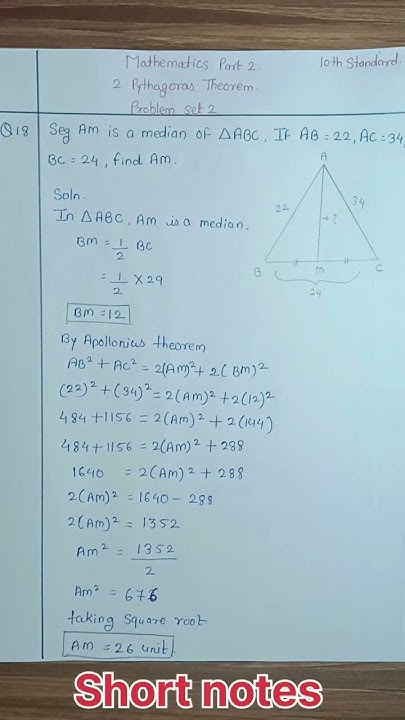 Mathematics Part 2. 10th Standard.
2. Pythagoras Theorem.
Problem Set 2
Q18 Seg Am is a median of △ABC, If AB = 22, AC = 34,
BC = 24, find Am.
Soln.
In △ABC, Am is a median.
Bm = 1/2 BC
= 1/2 × 29
Bm = 12
A
22
34
→ ?
B
M
C
24
By Apollonius theorem
AB² + AC² = 2(Am)² + 2(Bm)²
(22)² + (34)² = 2(Am)² + 2(12)²
484 + 1156 = 2(Am)² + 2(144)
484 + 1156 = 2(Am)² + 288
1640 = 2(Am)² + 288
2(Am)² = 1640 - 288
2(Am)² = 1352
Am² = 1352/2
Am² = 676
taking square root
Am = 26 unit.
Short notes